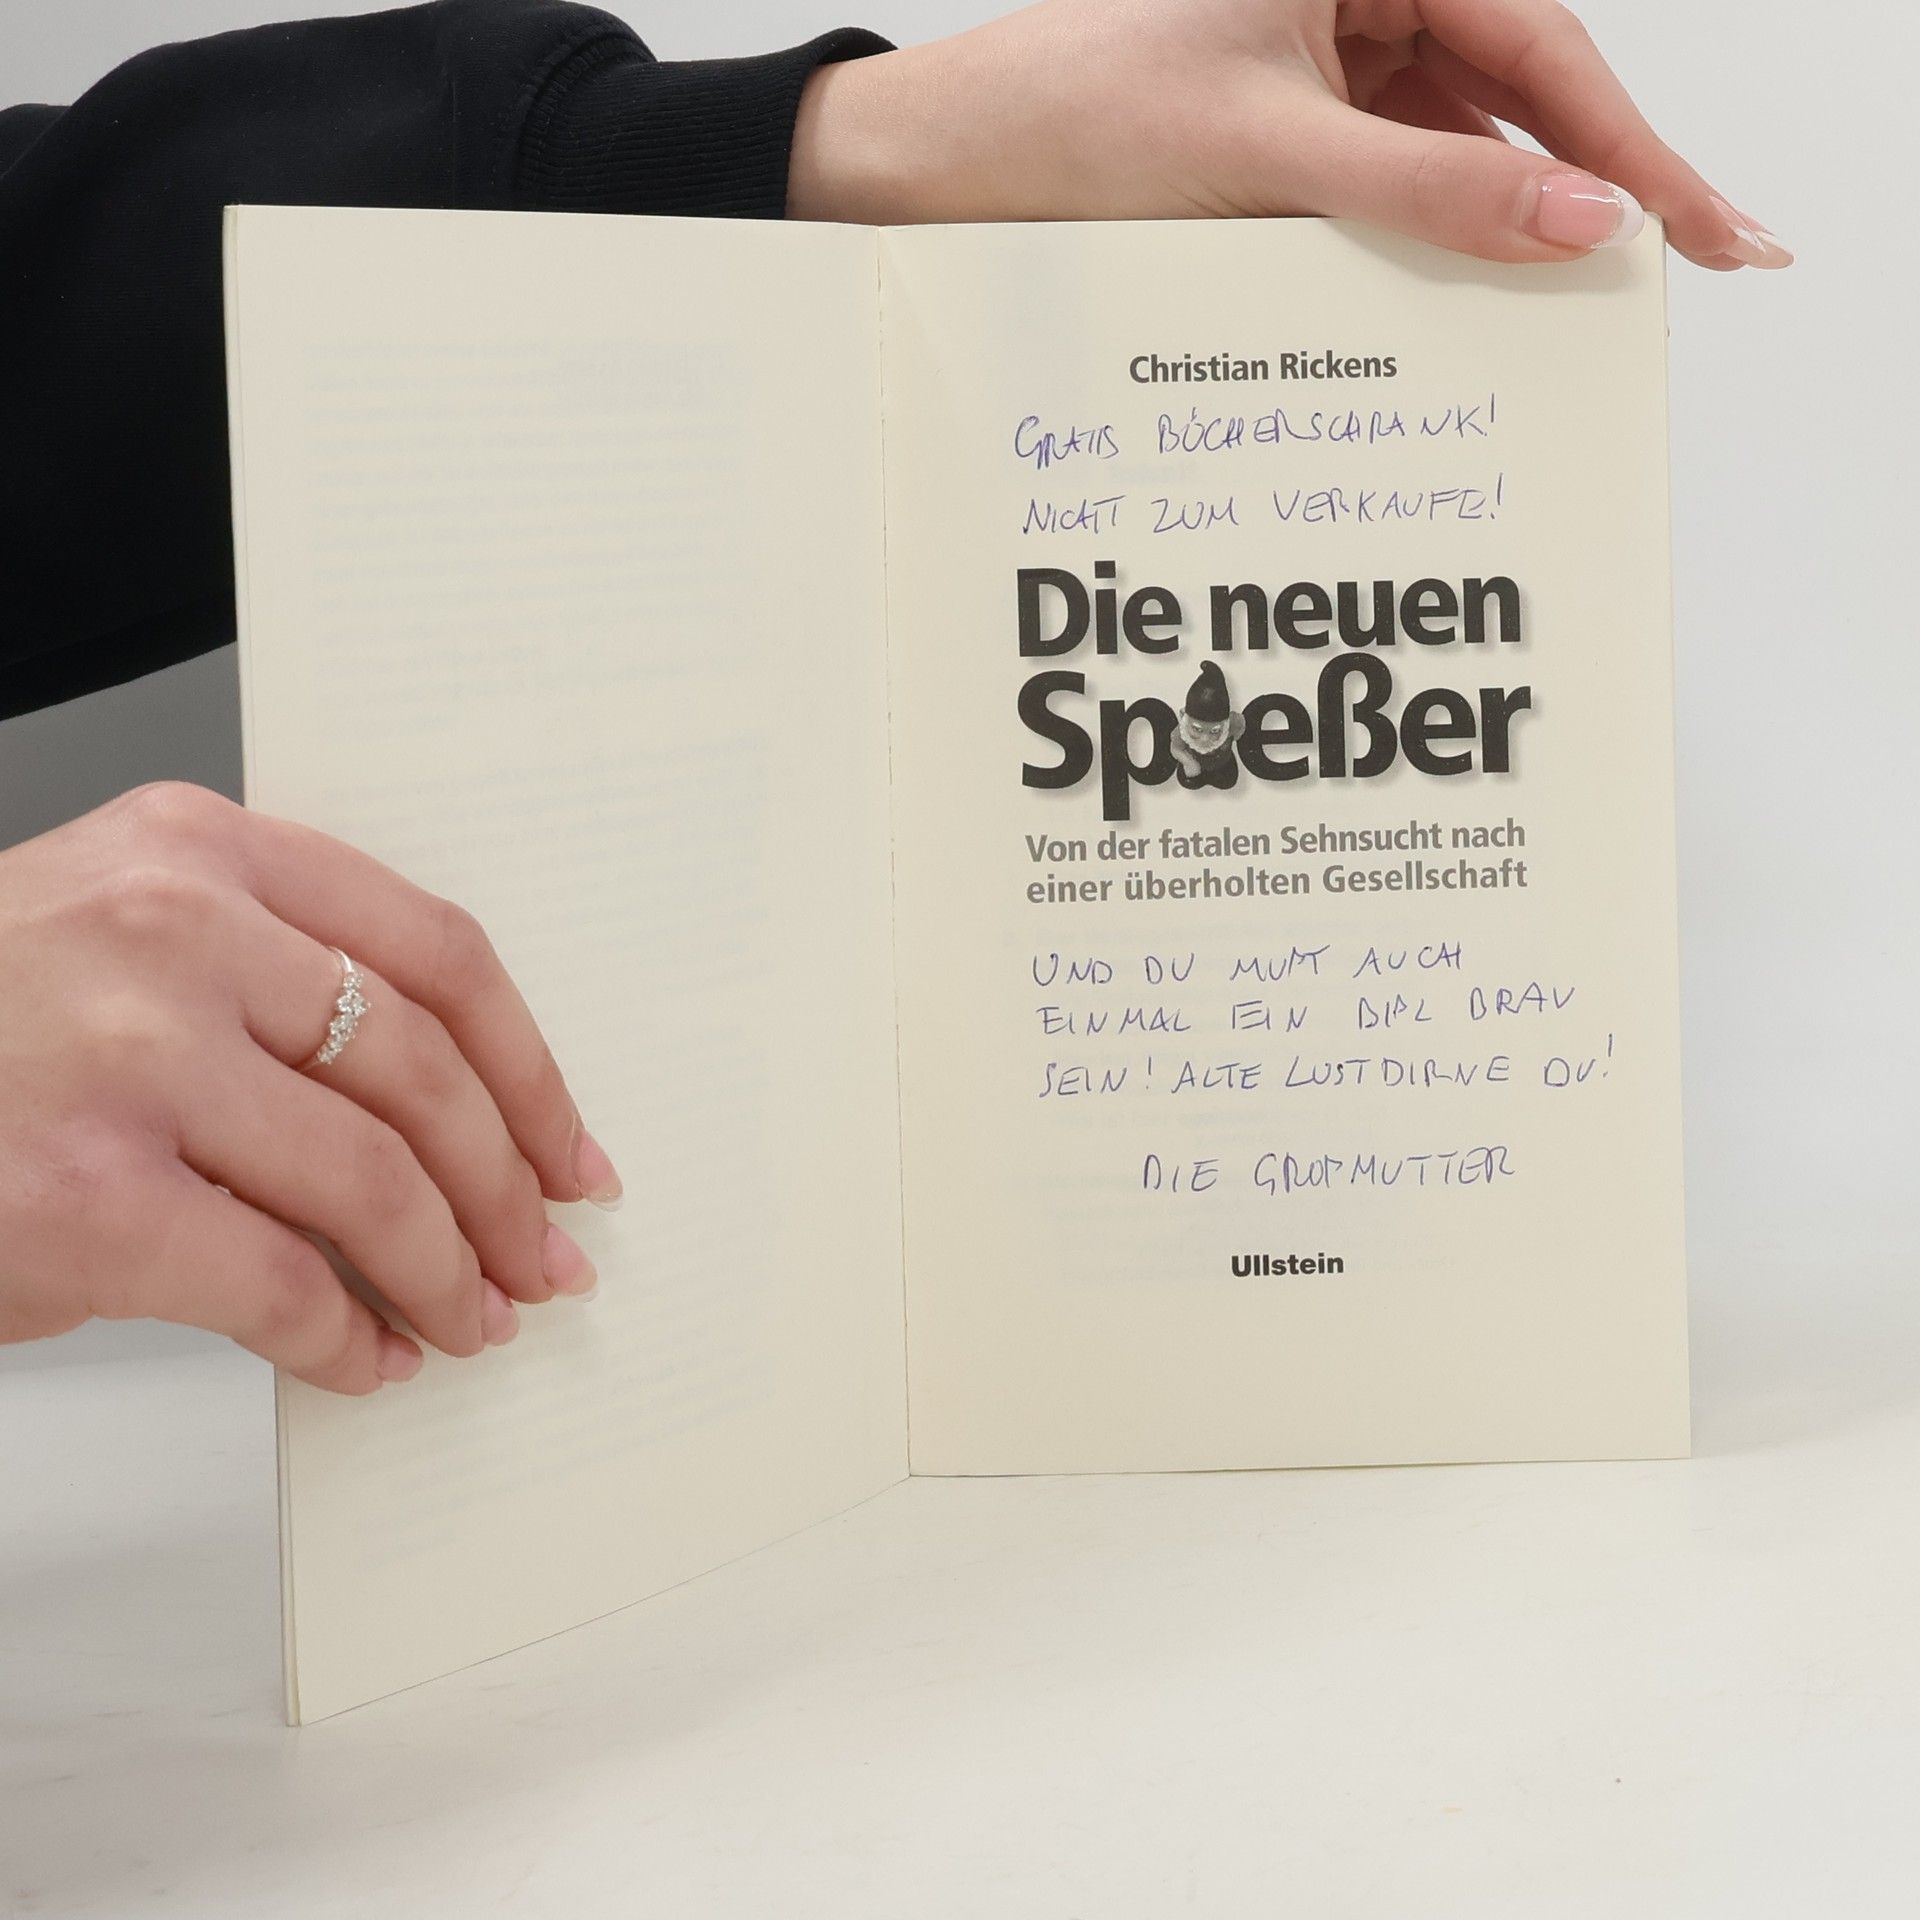 Christian Rickens
GRATIS BÜCHERSCHRANK!
NICHT ZUM VERKAUFE!
Die neuen
Spießer
Von der fatalen Sehnsucht nach
einer überholten Gesellschaft
UND DU MUßT AUCH
EINMAL EIN BIßL BRAV
SEIN! ALTE LUSTDIRNE DU!
DIE GROßMUTTER
Ullstein